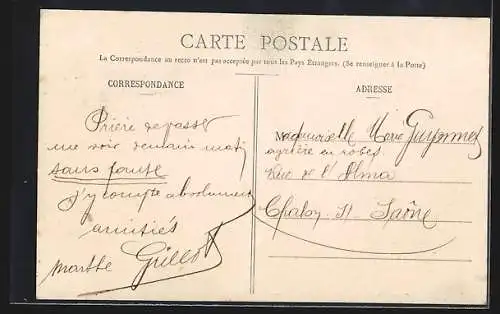 CARTE POSTALE
La Correspondance au recto n'est pas acceptée par tous les Pays Étrangers. (Se renseigner à la Poste)
CORRESPONDANCE
Prière de passer
me voir demain matin
sans faute
j'y compte absolument
amitiés
Marthe Grillot
ADRESSE
Mademoiselle Marie
en robes
Rue de l'Alma
Chalon-St-Saône